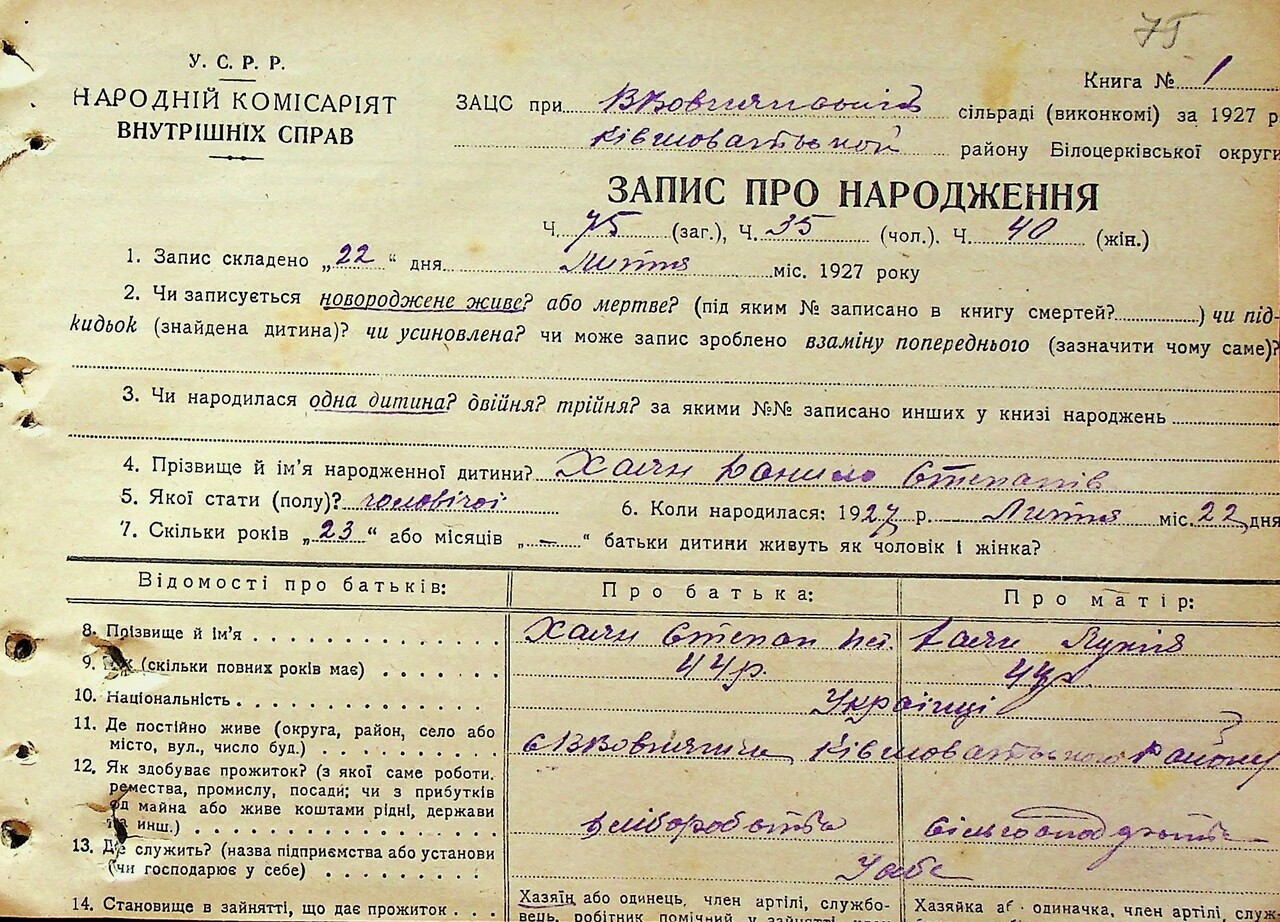 75
У. С. Р. Р.
НАРОДНІЙ КОМІСАРІЯТ
ВНУТРІШНІХ СПРАВ
Книга № 1
ЗАЦС при сільраді (виконкомі) за 1927 р
району Білоцерківської округи
ЗАПИС ПРО НАРОДЖЕННЯ
Ч. 75 (заг.), Ч. 35 (чол.). Ч. 40 (жін.)
1. Запис складено „22“ дня Лютня міс. 1927 року
2. Чи записується новороджене живе? або мертве? (під яким № записано в книгу смертей?) чи під-
кидьок (знайдена дитина)? чи усиновлена? чи може запис зроблено взаміну попереднього (зазначити чому саме)?
3. Чи народилася одна дитина? двійня? трійня? за якими №№ записано инших у книзі народжень
4. Прізвище й ім'я народженної дитини? Хаян Данило Степанів
5. Якої стати (полу)? чоловічої 6. Коли народилася: 1927 р. Лютня міс. 22 дня
7. Скільки років „23“ або місяців „—“ батьки дитини живуть як чоловік і жінка?
Відомості про батьків: Про батька: Про матір:
8. Прізвище й ім'я Хаян Степан Хаян
9. Вік (скільки повних років має) 44р. 43р
10. Національність Українці
11. Де постійно живе (округа, район, село або
місто, вул., число буд.) району
12. Як здобуває прожиток? (з якої саме роботи.
ремества, промислу, посади; чи з прибутків
од майна або живе коштами рідні, держави
та инш.) хліборобство
13. Де служить? (назва підприємства або установи
(чи господарює у себе) У себе
14. Становище в зайнятті, що дає прожиток Хазяїн або одинець, член артілі, службо-
вець, робітник помічний у зайнятті, Хазяйка або одиначка, член артілі, служ-